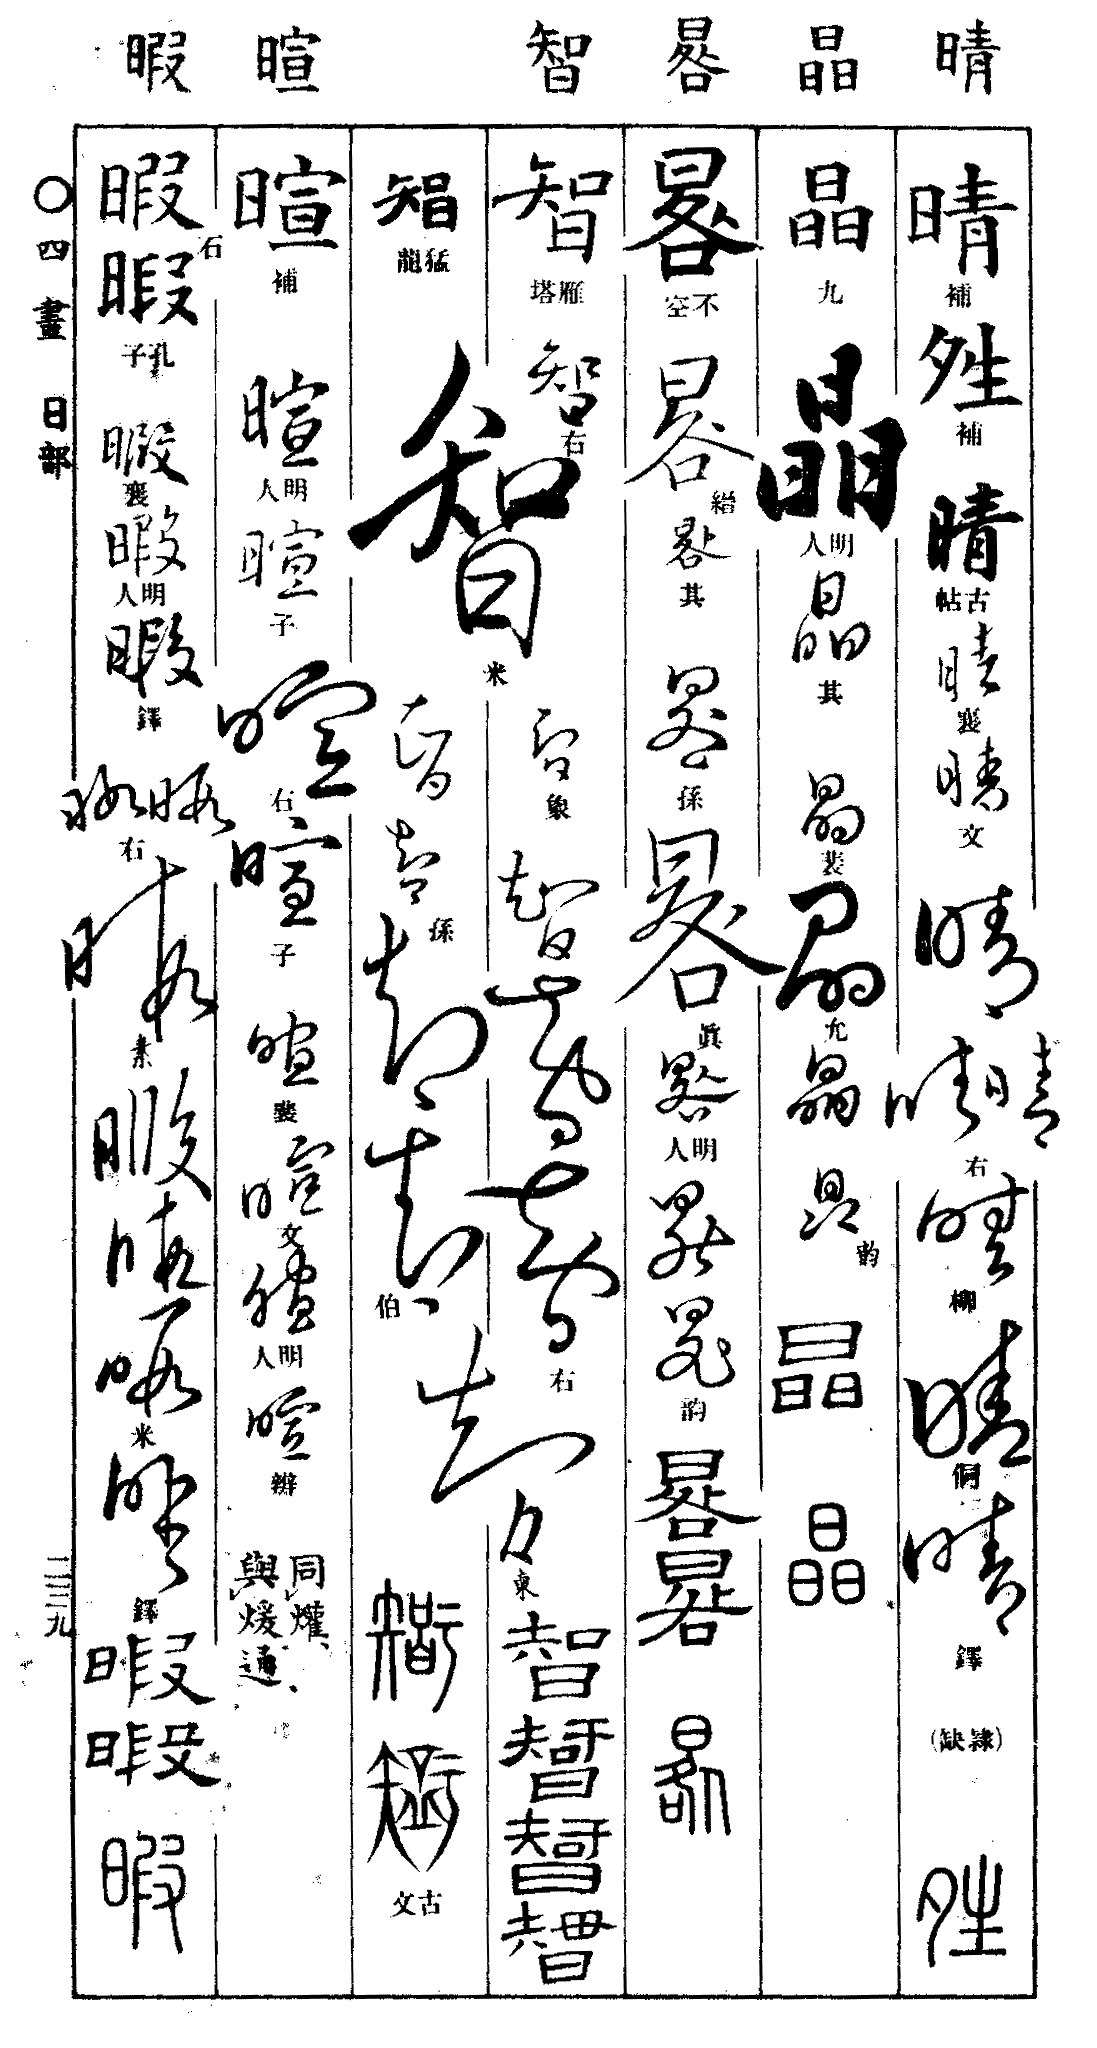 晴
晶
晷
智
暄
暇
晴
補
夝
補
晴
古帖
晴
襄
晴
文
晴
晴晴
右
晴
柳
晴
侗
晴
鐸
(隷缺)
夝
晶
九
晶
明人
晶
其
晶
裴
晶
允
晶
晶
韵
晶
晶
晷
不空
晷
縉
晷
其
晷
孫
晷
眞
晷
明人
晷
晷
韵
晷
晷
晷
智
雁塔
智
右
智
象
智
智
智
右
智
東
智
智
智
智
智
猛龍
智
米
智
智
孫
智
智
伯
智
智
智
古文
暄
補
暄
明人
暄
子
暄
右
暄
子
暄
裴
暄
文
暄
明人
暄
辨
同爟、
與煖通、
暇
石
暇
孔子
暇
襄
暇
明人
暇
鐸
暇暇
右
暇
素
暇
暇
暇
米
暇
鐸
暇
暇
暇
〇四畫 日部
二三九